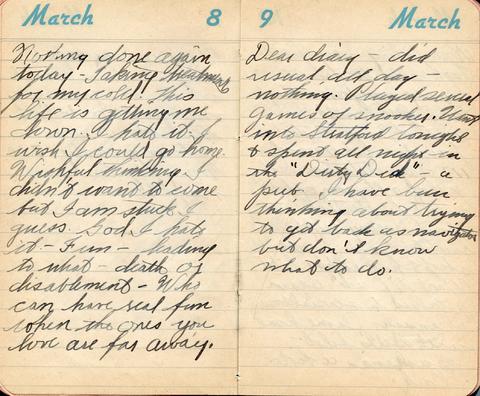 March 8
Nothing done again
today - Taking treatments
for my cold. This
life is getting me
down. I hate it. I
wish I could go home.
Wishful thinking I
didn't want to come
but I am stuck I
guess. God I hate
it - Fun - leading
to what - death or
disablement - Who
can have real fun
when the ones you
love are far away.
9 March
Dear diary - did
usual all day -
nothing. Played several
games of snooker. Went
into Stratford tonight
& spent all night in
the "Dirty Dick" - a
pub. I have been
thinking about trying
to get back as navigator
but don't know
what to do.